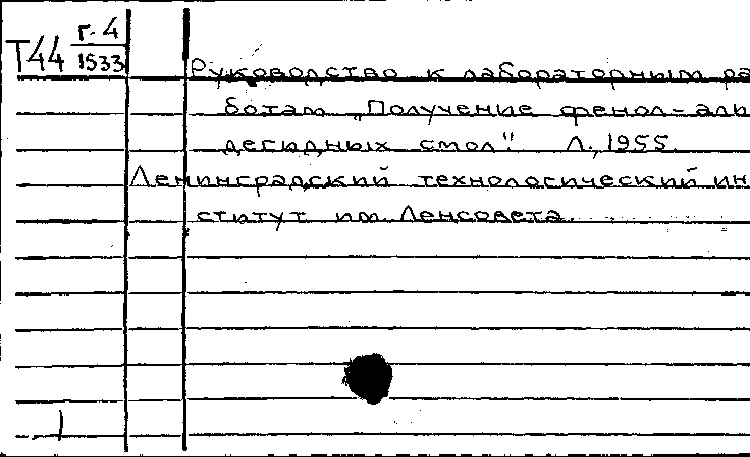 Т44 Г-4
1533
Руководство к лабораторным ра
ботам „Получение фенол-аль
дегидных смол". Л., 1955.
Ленинградский технологический ин
ститут им. Ленсовета.